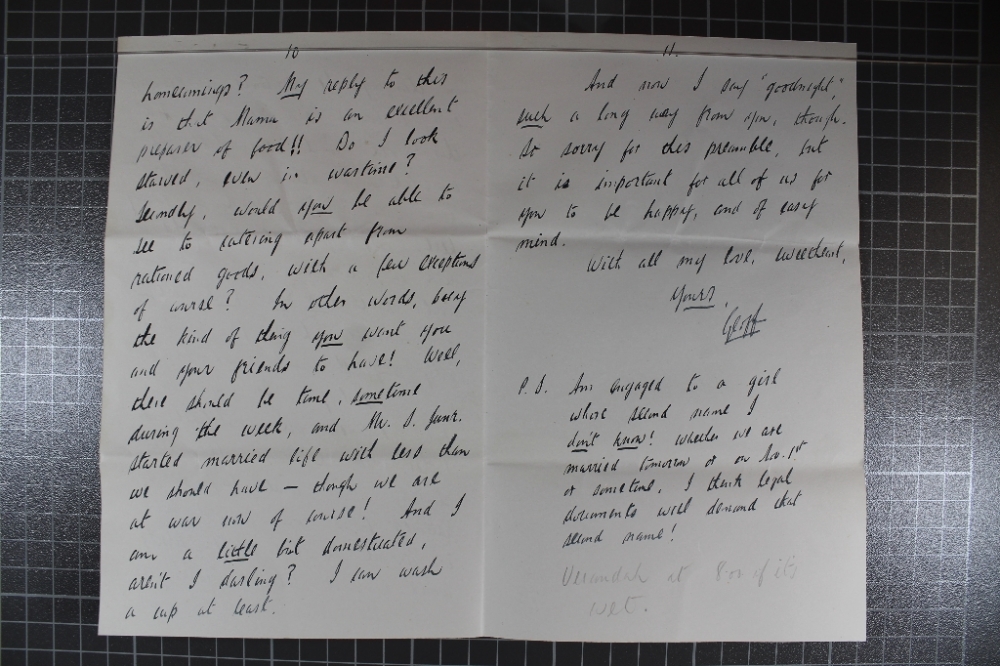 10
homecomings? My reply to this
is that Mama is an excellent
preparer of food!! Do I look
starved, even in wartime?
Secondly, would you be able to
see to catering apart from
rationed goods, with a few exceptions
of course? In other words, buy
the kind of thing you want you
and your friends to have! Well,
there should be time, sometime
during the week, and Mr. S. Junr.
started married life with less than
we should have — though we are
at war now of course! And I
am a little bit domesticated,
aren't I darling? I can wash
a cup at least.
11.
And now I say "goodnight",
such a long way from you, though.
So sorry for this preamble, but
it is important for all of us for
you to be happy, and of easy
mind.
With all my love, sweetheart,
Yours,
Geoff
P.S. Am engaged to a girl
whose second name I
don't know! Whether we are
married tomorrow or on Nov. 1st
or sometime, I think legal
documents will demand that
second name!
Verandah at 8.0 if it's
wet.